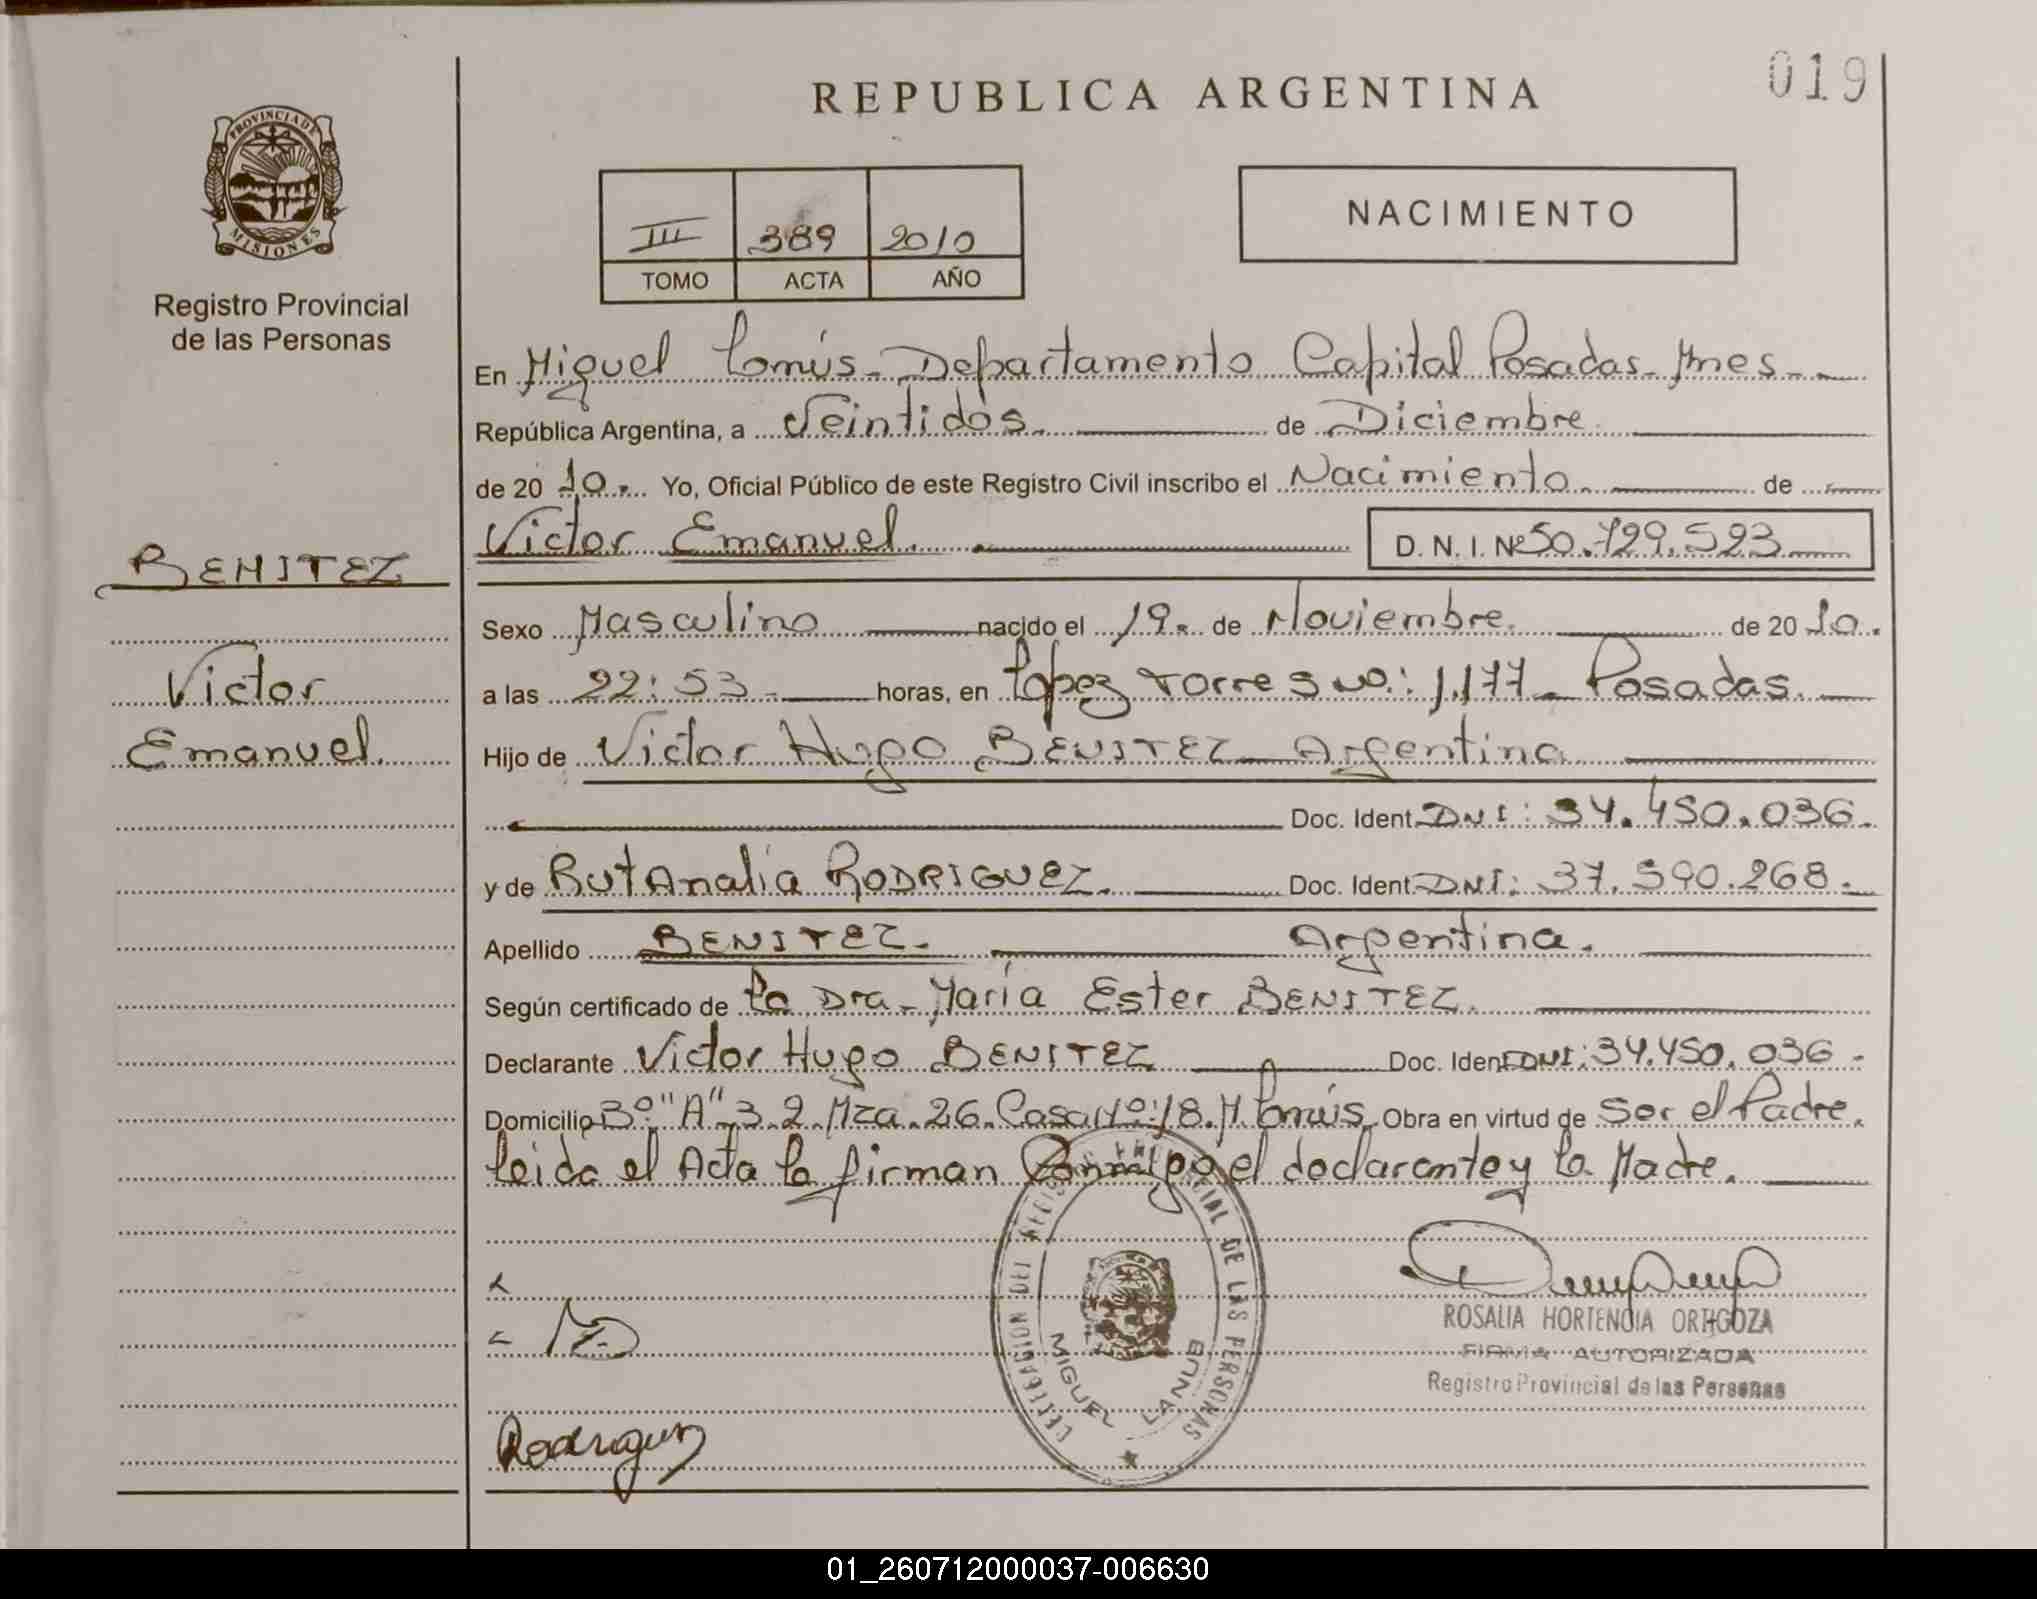 019
REPUBLICA ARGENTINA
PROVINCIA DE
MISIONES
Registro Provincial
de las Personas
III 389 2010
TOMO ACTA AÑO
NACIMIENTO
En Miguel Lanús - Departamento Capital Posadas - Mnes -
República Argentina, a Veintidós. de Diciembre
de 20 10. Yo, Oficial Público de este Registro Civil inscribo el Nacimiento. de
Victor Emanuel. D. N. I. Nº 50.729.523
BENITEZ
Victor
Emanuel.
Sexo Masculino nacido el 19. de Noviembre. de 20 10.
a las 22:53 - horas, en López Torres Nº: 1.177 - Posadas.
Hijo de Victor Hugo BENITEZ Argentina
Doc. Ident. DNI: 34.450.036.
y de Rut Analia RODRIGUEZ. Doc. Ident. DNI: 37.590.268.
Apellido BENITEZ. Argentina.
Según certificado de la Dra. María Ester BENITEZ.
Declarante Victor Hugo BENITEZ Doc. Ident. DNI: 34.450.036 -
Domicilio Bº "A" 3.2 Mza. 26. Casa Nº: 18. M. Lanús. Obra en virtud de ser el Padre.
leida el Acta la firman Conmigo el declarante y la Madre.
DELEGACION DEL REGISTRO PROVINCIAL DE LAS PERSONAS
MIGUEL LANUS
ROSALIA HORTENCIA ORTIGOZA
FIRMA AUTORIZADA
Registro Provincial de las Personas
Rodriguez
01_260712000037-006630